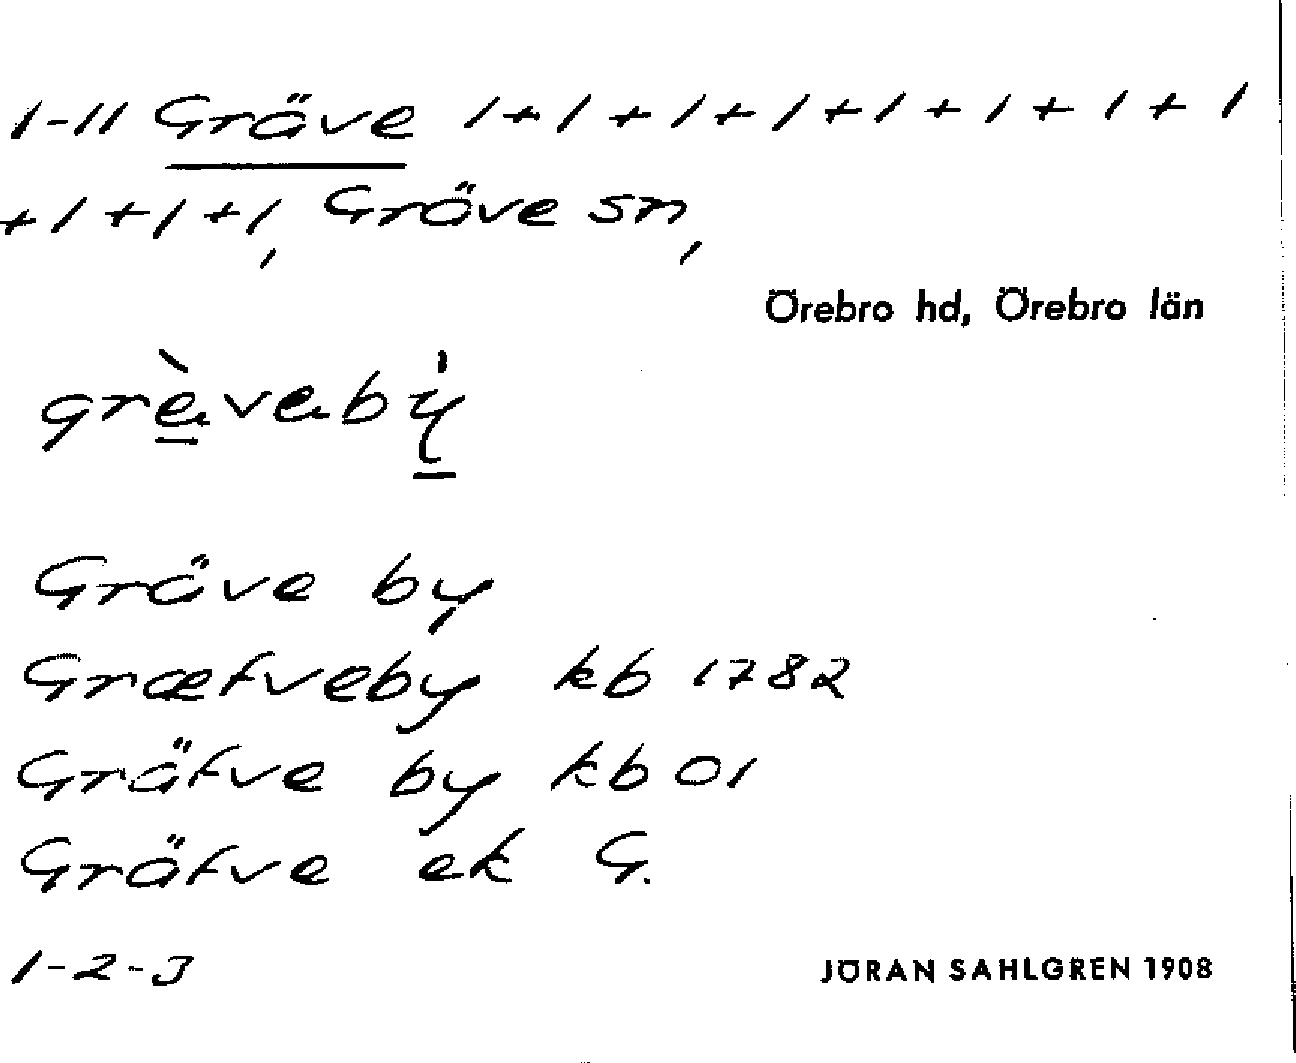 1-11 Gräve 1+1+1+1+1+1+1+1
+1+1+1, Gräve sn,
Örebro hd, Örebro län
grèvabẏ
Gräve by
Græfveby kb 1782
Gräfve by kb 01
Gräfve ek G.
1-2-3
JÖRAN SAHLGREN 1908